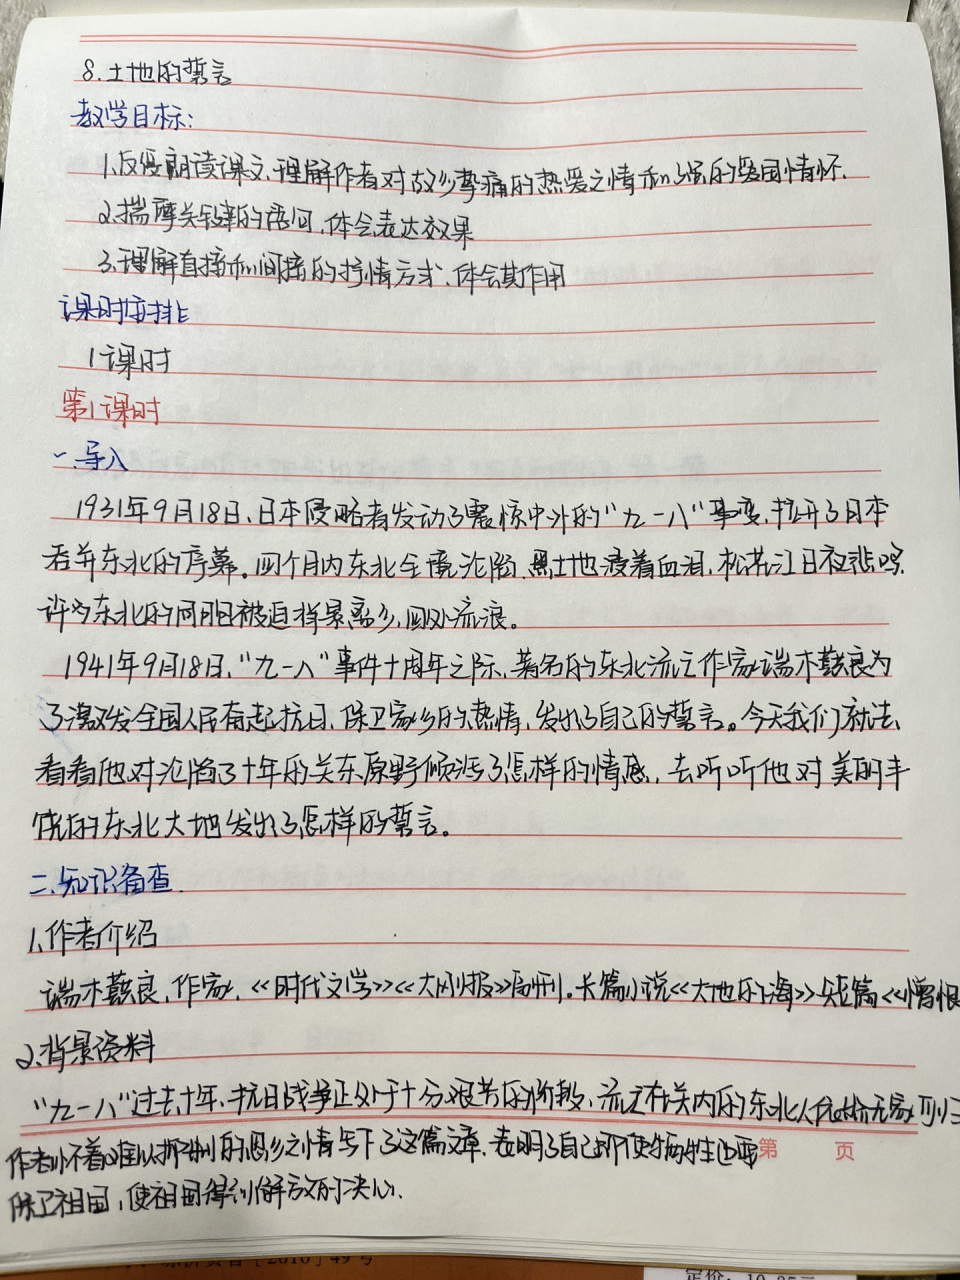 8.土地的誓言
教学目标:
1.反复朗读课文,理解作者对故乡挚痛的热爱之情和强的爱国情怀.
2.揣摩关键的语句,体会表达效果
3.理解直接和间接的抒情方式,体会其作用
课时安排
1课时
第1课时
一.导入
1931年9月18日,日本侵略者发动了震惊中外的“九一八”事变,拉开了日本
吞并东北的序幕。四个月内东北全境沦陷,黑土地浸着血泪,松花江日夜悲鸣,
许多东北的同胞被迫背景离乡,四处流浪。
1941年9月18日,“九一八”事件十周年之际,著名的东北流亡作家端木蕻良为
了激发全国人民奋起抗日,保卫家乡的热情,发出了自己的誓言。今天我们就去
看看他对沦陷了十年的关东原野倾注了怎样的情感,去听听他对美丽丰
饶的东北大地发出了怎样的誓言。
二.知识备查
1.作者介绍
端木蕻良,作家,《时代文学》《大刚报》副刊。长篇小说《大地的海》短篇《憎恨
2.背景资料
“九一八”过去十年,抗日战争正处于十分艰苦的阶段,流亡在关内的东北人依然无家可归
作者怀着难以抑制的思乡之情写下了这篇文章,表明了自己即使牺牲也要
第 页
保卫祖国,使祖国得到解放的决心.
[2010]49号
定价:10.85元